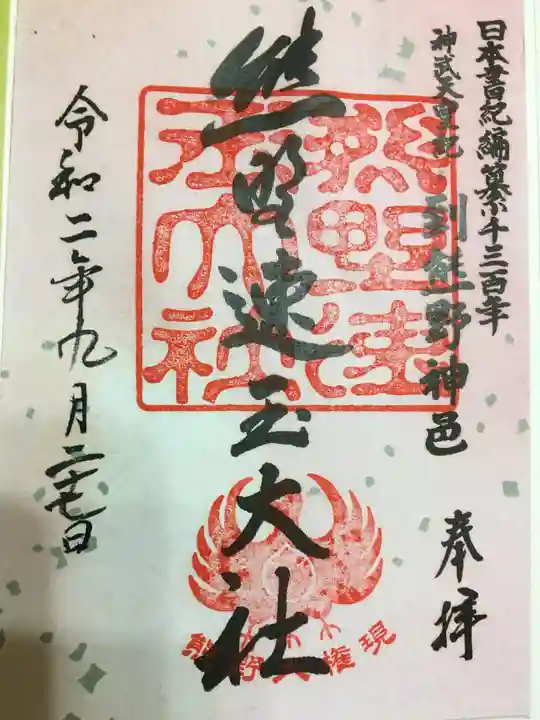 日本書紀編纂千三百年
神武天皇記 到熊野神邑
奉拝
熊野速玉大社
熊野速玉大社
熊野大権現
令和二年九月二十七日